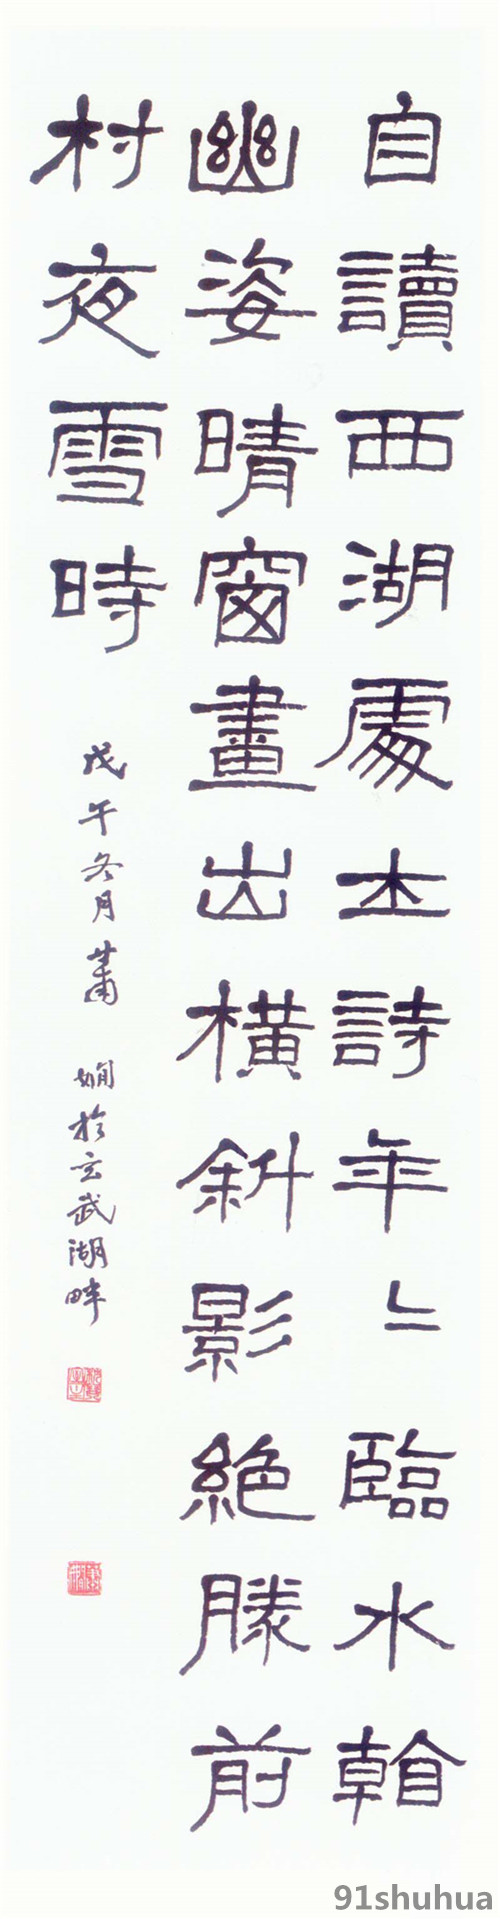 自讀西湖處士詩年〻臨水𥈠
幽姿晴窗畫出橫斜影絕勝前
村夜雪時
戊午冬月蕭嫻於玄武湖畔
91shuhua